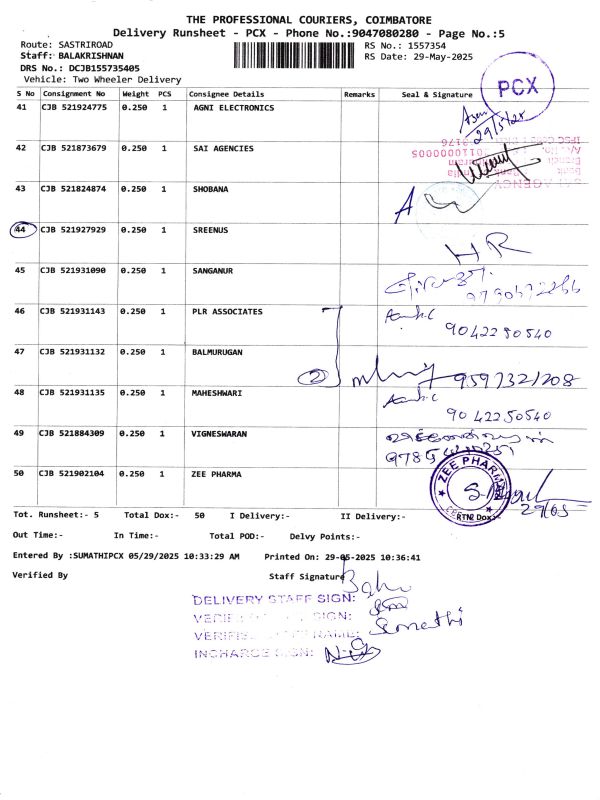 THE PROFESSIONAL COURIERS, COIMBATORE
Delivery Runsheet - PCX - Phone No.:9047080280 - Page No.:5
Route: SASTRIROAD
RS No.: 1557354
Staff: BALAKRISHNAN
RS Date: 29-May-2025
DRS No.: DCJB155735405
Vehicle: Two Wheeler Delivery
PCX
S No Consignment No Weight PCS Consignee Details Remarks Seal & Signature
41 CJB 521924775 0.250 1 AGNI ELECTRONICS
29/5/25
42 CJB 521873679 0.250 1 SAI AGENCIES
43 CJB 521824874 0.250 1 SHOBANA
A
44 CJB 521927929 0.250 1 SREENUS
HR
45 CJB 521931090 0.250 1 SANGANUR
46 CJB 521931143 0.250 1 PLR ASSOCIATES
9042250540
47 CJB 521931132 0.250 1 BALMURUGAN
2
9597321208
48 CJB 521931135 0.250 1 MAHESHWARI
9042250540
49 CJB 521884309 0.250 1 VIGNESWARAN
50 CJB 521902104 0.250 1 ZEE PHARMA
ZEE PHARMA
29/05
Tot. Runsheet:- 5 Total Dox:- 50 I Delivery:- II Delivery:- RTN Dox:-
Out Time:- In Time:- Total POD:- Delvy Points:-
Entered By :SUMATHIPCX 05/29/2025 10:33:29 AM Printed On: 29-05-2025 10:36:41
Verified By Staff Signature
DELIVERY STAFF SIGN:
SIGN:
NAME: Sumathi
INCHARGE SIGN: